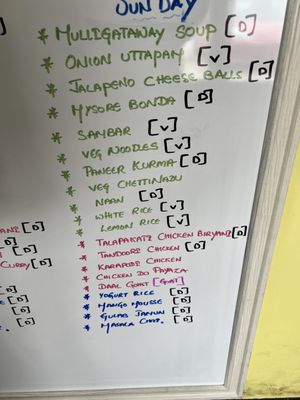 SUNDAY
* MULLIGATAWAY SOUP [D]
* ONION UTTAPAM [V]
* JALAPENO CHEESE BALLS [D]
* MYSORE BONDA [D]
* SAMBAR [V]
* VEG NOODLES [V]
* PANEER KURMA [D]
* VEG CHETTINADU
* NAAN [D]
* WHITE RICE [V]
* LEMON RICE [V]
* TALAPAKATZ CHICKEN BIRYANI [D]
* TANDOORI CHICKEN [D]
* KARAPODI CHICKEN
* CHICKEN DO PAYAZA
* DAAL GOHST [GOAT]
* YOGURT RICE [D]
* MANGO MOUSSE [D]
* GULAB JAMUN [D]
* MASALA CHAI. [D]
[D]
[D]
CURRY [D]
[D]
[D]
[D]